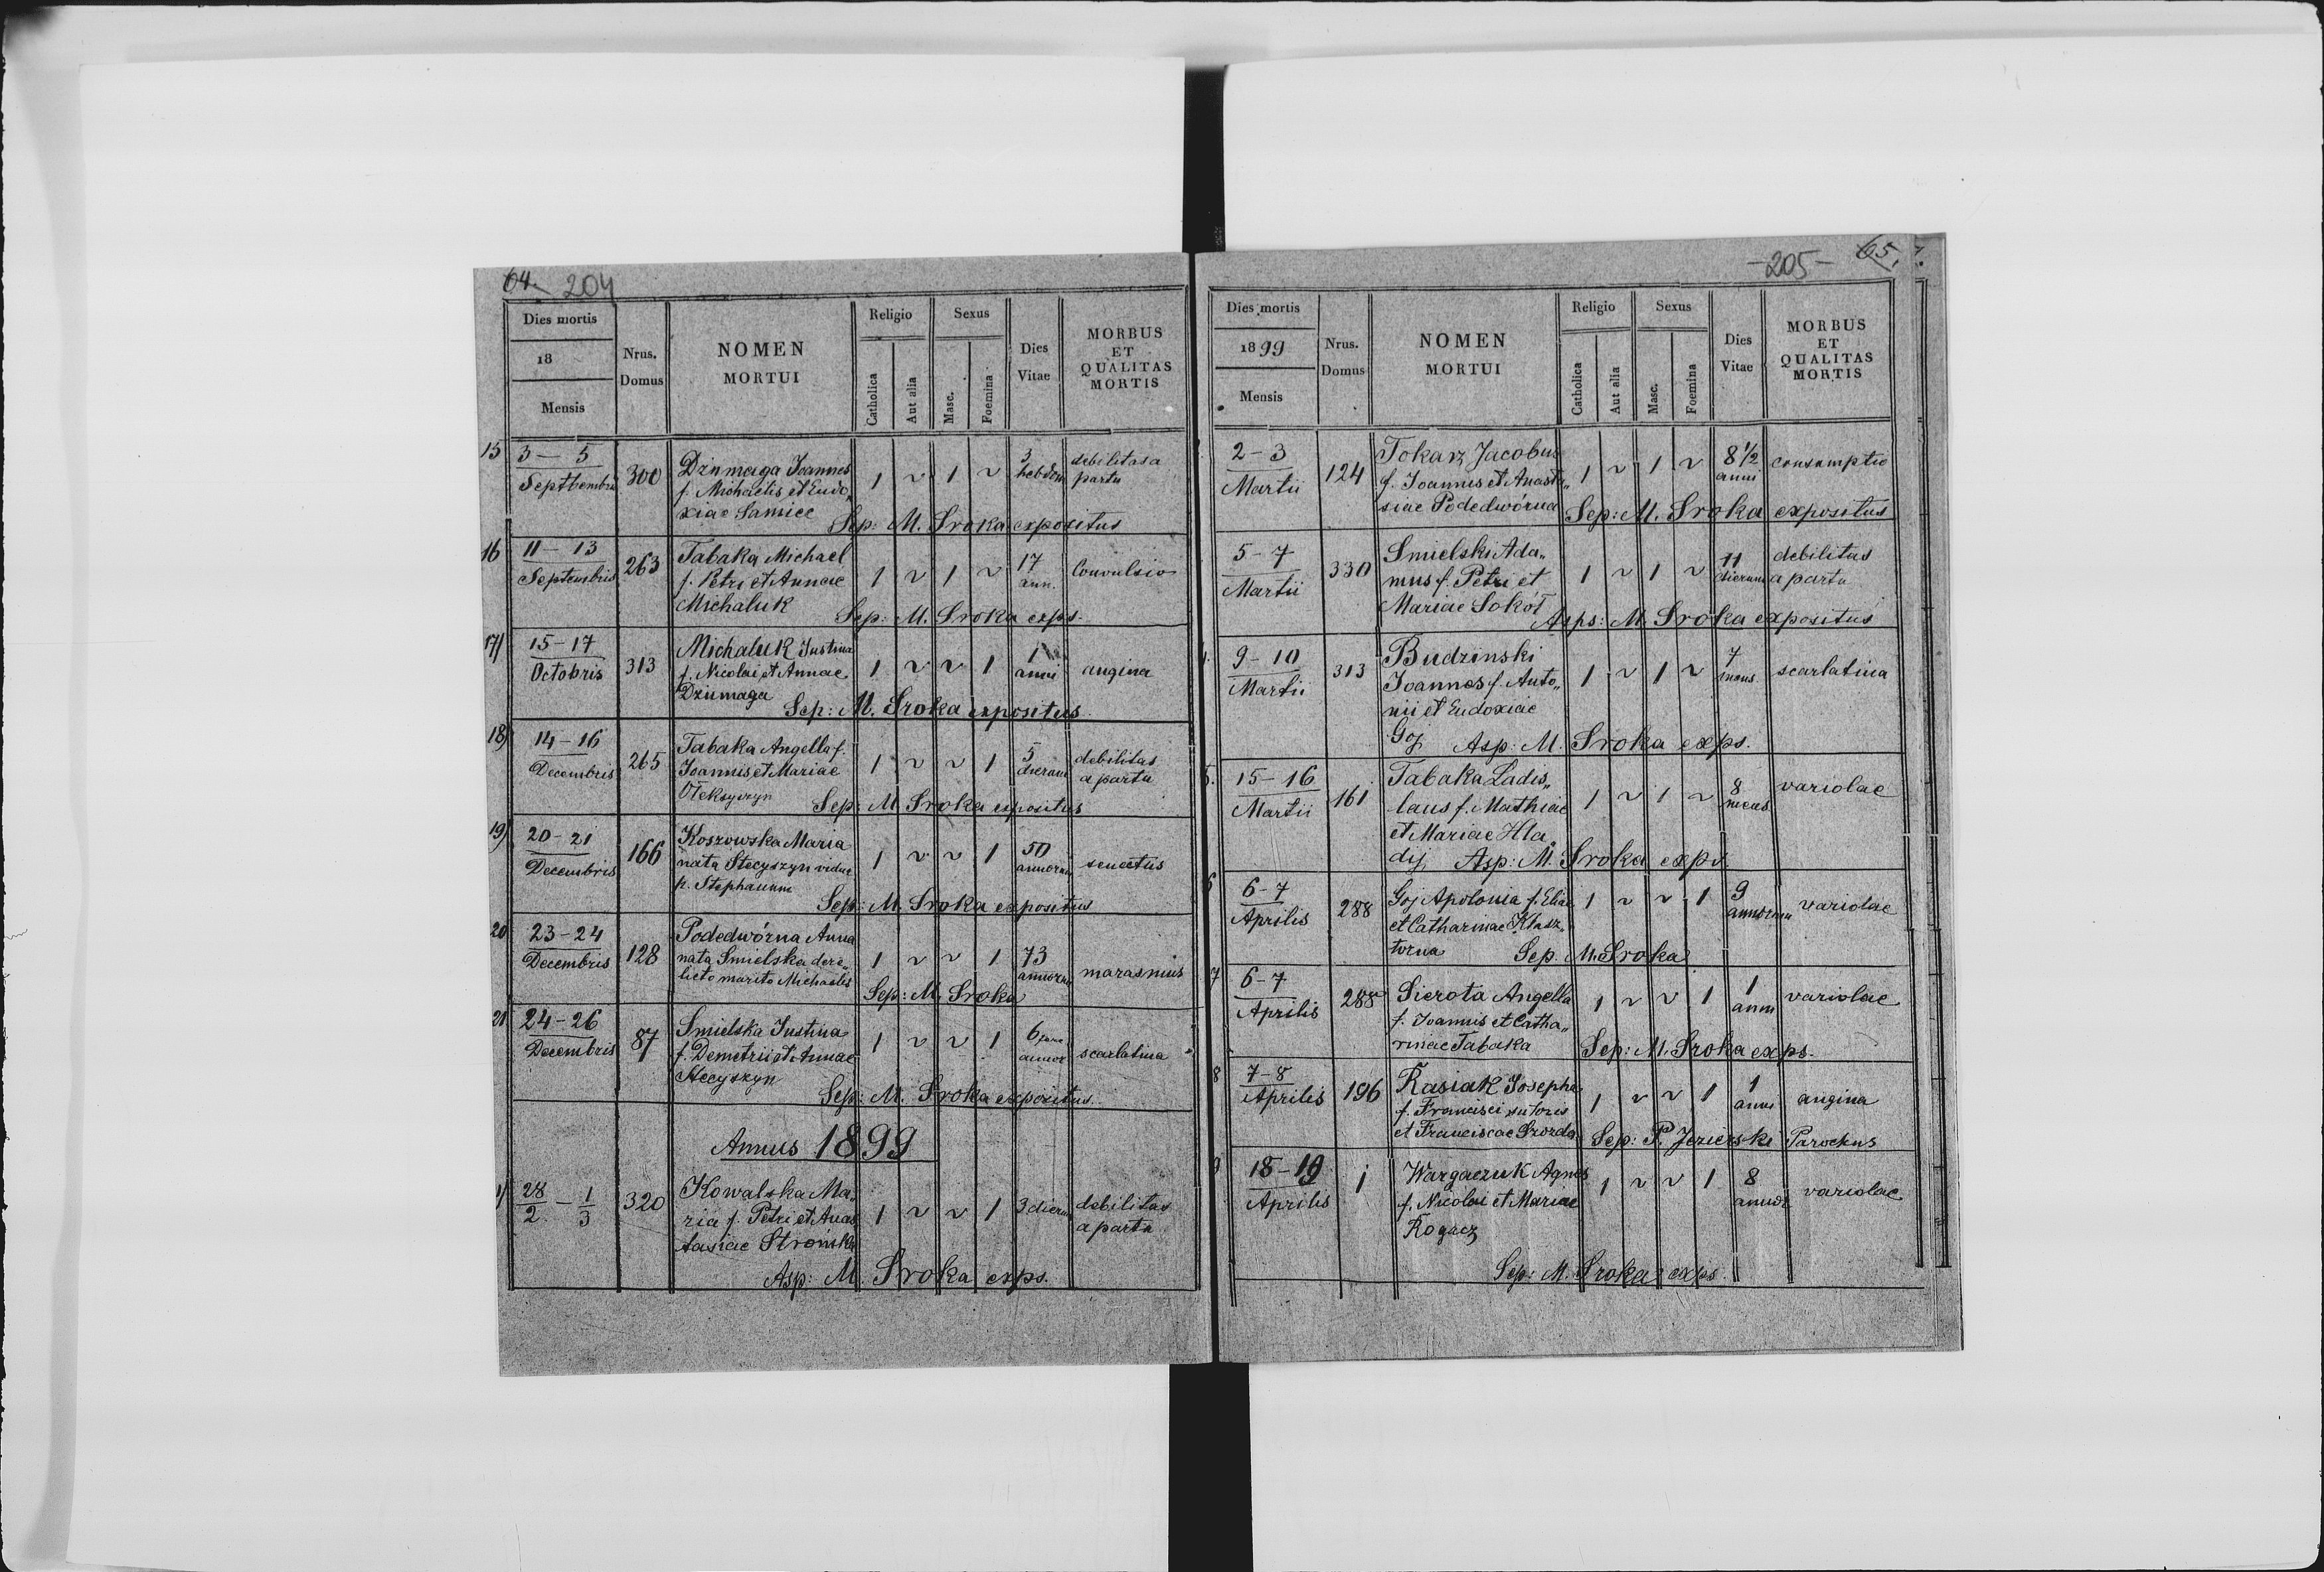 64. 204
Dies mortis
18
Mensis
Nrus.
Domus
NOMEN
MORTUI
Religio
Catholica
Aut alia
Sexus
Masc.
Foemina
Dies
Vitae
MORBUS
ET
QUALITAS
MORTIS
15 3 — 5 300 Dziumaga Joannes 1 ~ 1 ~ 3 debilitas a
Septhembris f. Michaelis et Eudo„ hebdom partu
xiae Samiec
Sep: M. Sroka expositus
16 11 — 13 263 Tabaka Michael 1 ~ 1 ~ 17 Convulsio
Septembris f. Petri et Annae ann.
Michaluk Sep: M. Sroka exps.
17) 15 - 17 313 Michaluk Justina 1 ~ ~ 1 1 angina
Octobris f. Nicolai et Annae anni
Dziumaga Sep: M. Sroka expositus
18) 14 - 16 265 Tabaka Angella f. 1 ~ ~ 1 5 debilitas
Decembris Joannis et Mariae dierum a partu
Oleksyszyn Sep: M. Sroka expositus
19) 20 - 21 166 Koszowska Maria 1 ~ ~ 1 50 senectus
Decembris nata Stecyszyn vidua annorum
p. Stephanum
Sep: M. Sroka expositus
20 23 - 24 128 Podedwórna Anna 1 ~ ~ 1 73 marasmus
Decembris nata Smielska dere„ annorum
licto marito Michaelis
Sep: M. Sroka
21 24 - 26 87 Smielska Justina 1 ~ ~ 1 6 scarlatina
Decembris f. Demetrii et Annae annor
Stecyszyn
Sep: M. Sroka expositus
Annus 1899
1) 28/2 - 1/3 320 Kowalska Ma„ 1 ~ ~ 1 3 dierum debilitas
ria f. Petri et Anas a partu
tasiae Stromka
Asp: M. Sroka exps.
-205- 65.
Dies mortis
1899
Mensis
Nrus.
Domus
NOMEN
MORTUI
Religio
Catholica
Aut alia
Sexus
Masc.
Foemina
Dies
Vitae
MORBUS
ET
QUALITAS
MORTIS
2 - 3 124 Tokarz Jacobus 1 ~ 1 ~ 8 1/2 consumptio
Martii f. Joannis et Anasta„ anni
siae Podedwórna Sep: M. Sroka expositus
5 - 7 330 Smielski Ada„ 1 ~ 1 ~ 11 debilitas
Martii mus f. Petri et dierum a partu
Mariae Sokół
Asps: M. Sroka expositus
9 - 10 313 Budzinski 1 ~ 1 ~ 7 scarlatina
Martii Joannes f. Anto„ mens
nii et Eudoxiae
Goj Asp: M. Sroka exps.
5. 15 - 16 161 Tabaka Ladis„ 1 ~ 1 ~ 8 variolae
Martii laus f. Mathiae mens
et Mariae Hła„
dij Asp: M. Sroka exps
6 6 - 7 288 Goj Apolonia f. Eliae 1 ~ ~ 1 9 variolae
Aprilis et Catharinae Klasz„ annorum
torna Sep. M. Sroka
7 6 - 7 288 Sierota Angella 1 ~ ~ 1 1 variolae
Aprilis f. Joannis et Catha„ anni
rinae Tabaka Sep: M. Sroka exps.
8 7 - 8 196 Rasiak Josepha 1 ~ ~ 1 1 angina
Aprilis f. Francisci sutoris anni
et Franciscae Srozda Sep: P. Jezierski Parochus
9 18 - 19 1 Wargaczuk Agnes 1 ~ ~ 1 8 variolae
Aprilis f. Nicolai et Mariae annor
Rogacz
Sep: M. Sroka exps.